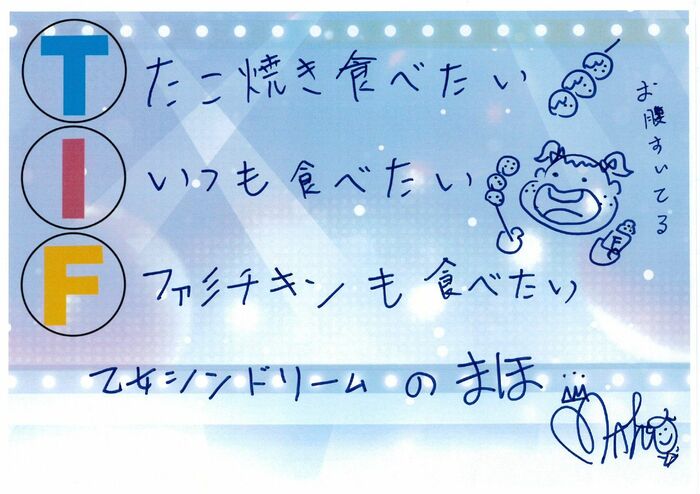 T たこ焼き食べたい
I いつも食べたい
F ファミチキンも食べたい
お腹すいてる
乙女シンドリームのまほ
Maho